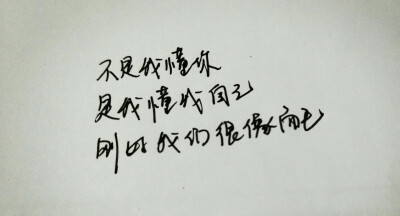 不是我懂你
是我懂我自己
刚好我们很像而已